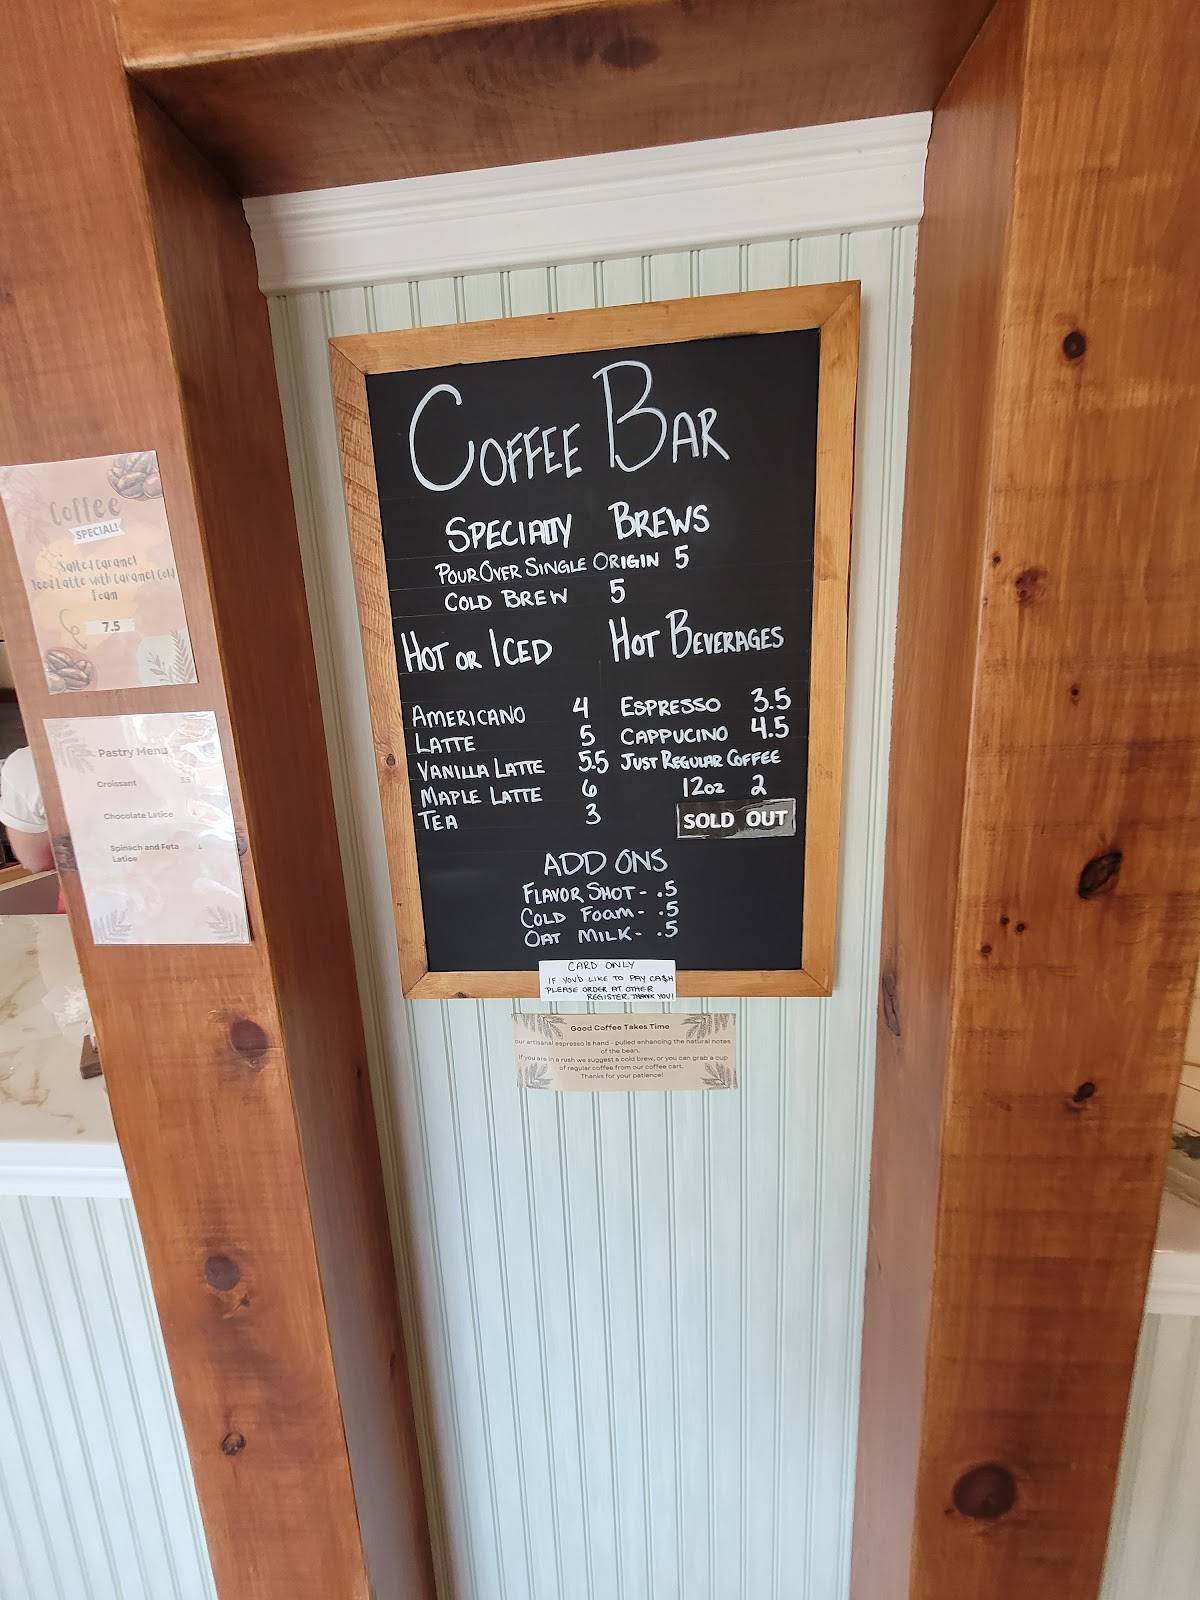 COFFEE BAR
SPECIALTY BREWS
POUR OVER SINGLE ORIGIN 5
COLD BREW 5
HOT OR ICED
AMERICANO 4
LATTE 5
VANILLA LATTE 5.5
MAPLE LATTE 6
TEA 3
HOT BEVERAGES
ESPRESSO 3.5
CAPPUCINO 4.5
JUST REGULAR COFFEE
12oz 2
SOLD OUT
ADD ONS
FLAVOR SHOT - .5
COLD FOAM - .5
OAT MILK - .5
CARD ONLY
IF YOU'D LIKE TO PAY CA$H
PLEASE ORDER AT OTHER
REGISTER. THANK YOU!
Good Coffee Takes Time
our artisanal espresso is hand - pulled enhancing the natural notes
of the bean.
If you are in a rush we suggest a cold brew, or you can grab a cup
of regular coffee from our coffee cart.
Thanks for your patience!
Coffee
SPECIAL!
Salted Caramel
Iced Latte with Caramel Cold
Foam
7.5
Pastry Menu
Croissant 3.5
Chocolate Latice
Spinach and Feta
Latice